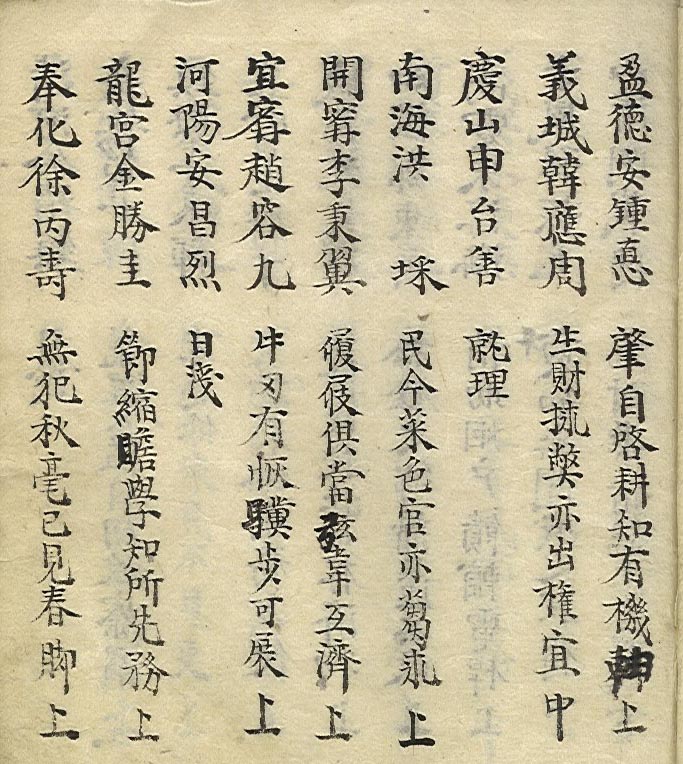 盈德安鍾悳 肇自啓耕知有機軸上
義城韓應周 生財捄弊亦出權宜中
慶山申台善 就理
南海洪 埰 民今菜色官亦蒭求上
開寗李秉翼 履屐俱當弦韋互濟上
宜寗趙容九 牛刃有恢驥步可展上
河陽安昌烈 日淺
龍宮金勝圭 節縮瞻學知所先務上
奉化徐丙壽 無犯秋毫已見春脚上